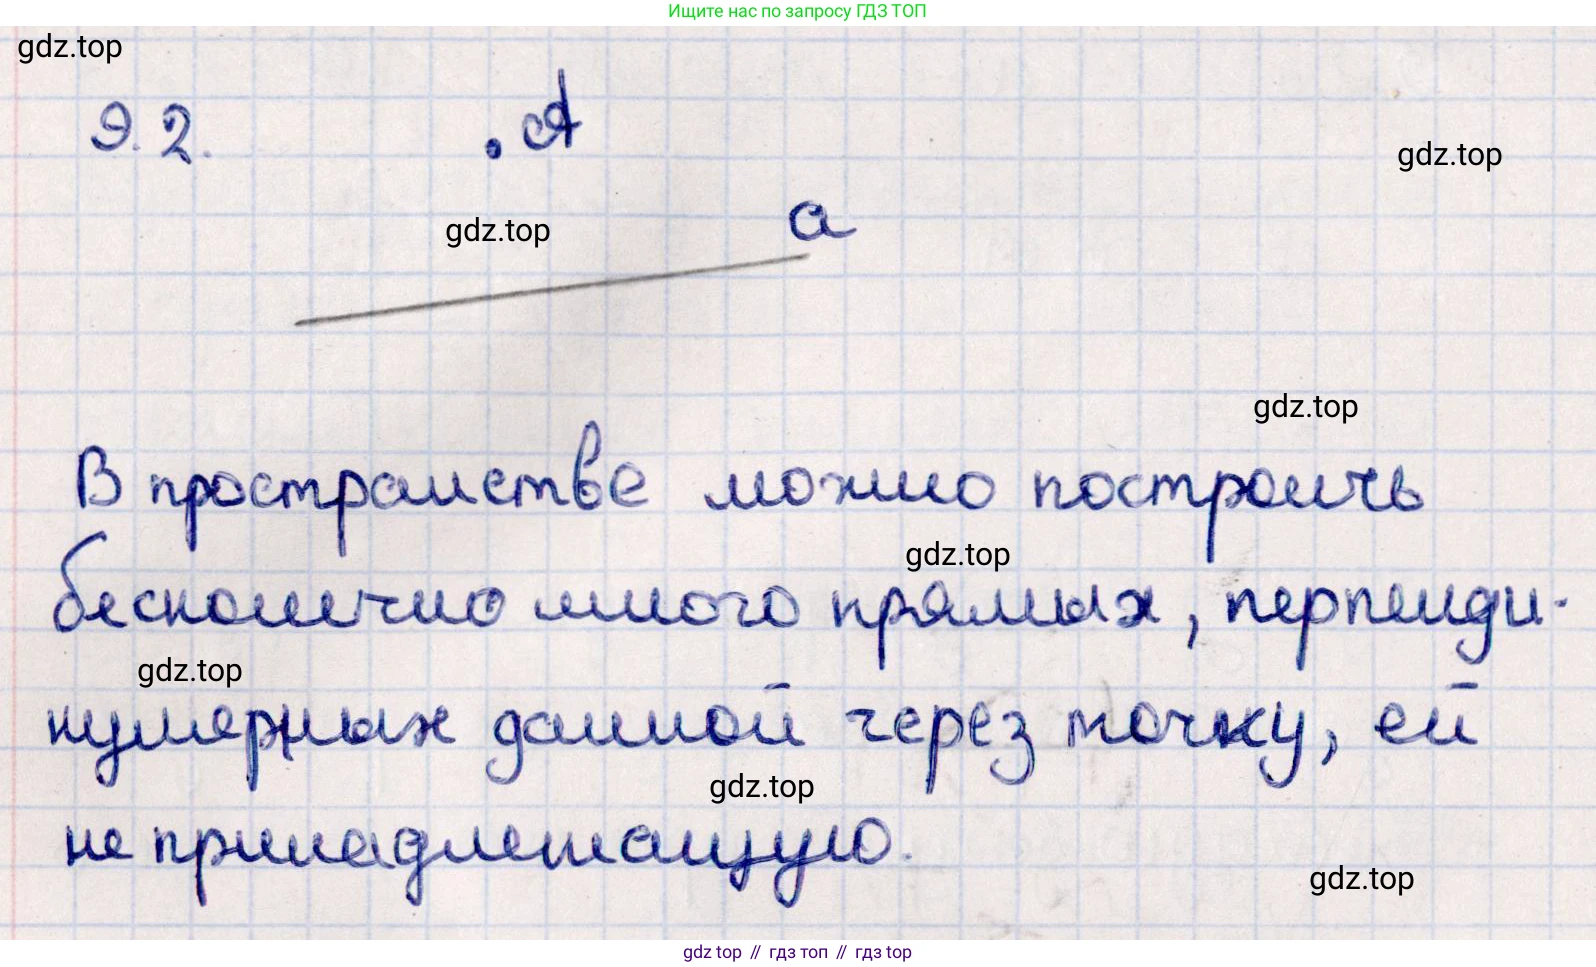 Ищите нас по запросу ГДЗ ТОП
gdz.top
9.2. . A
gdz.top
gdz.top
a
gdz.top
В пространстве можно построить
gdz.top
бесконечно много прямых, перпенди-
gdz.top
кулярных данной через точку, ей
gdz.top
не принадлежащую.
gdz.top
gdz top // гдз топ // gdz top